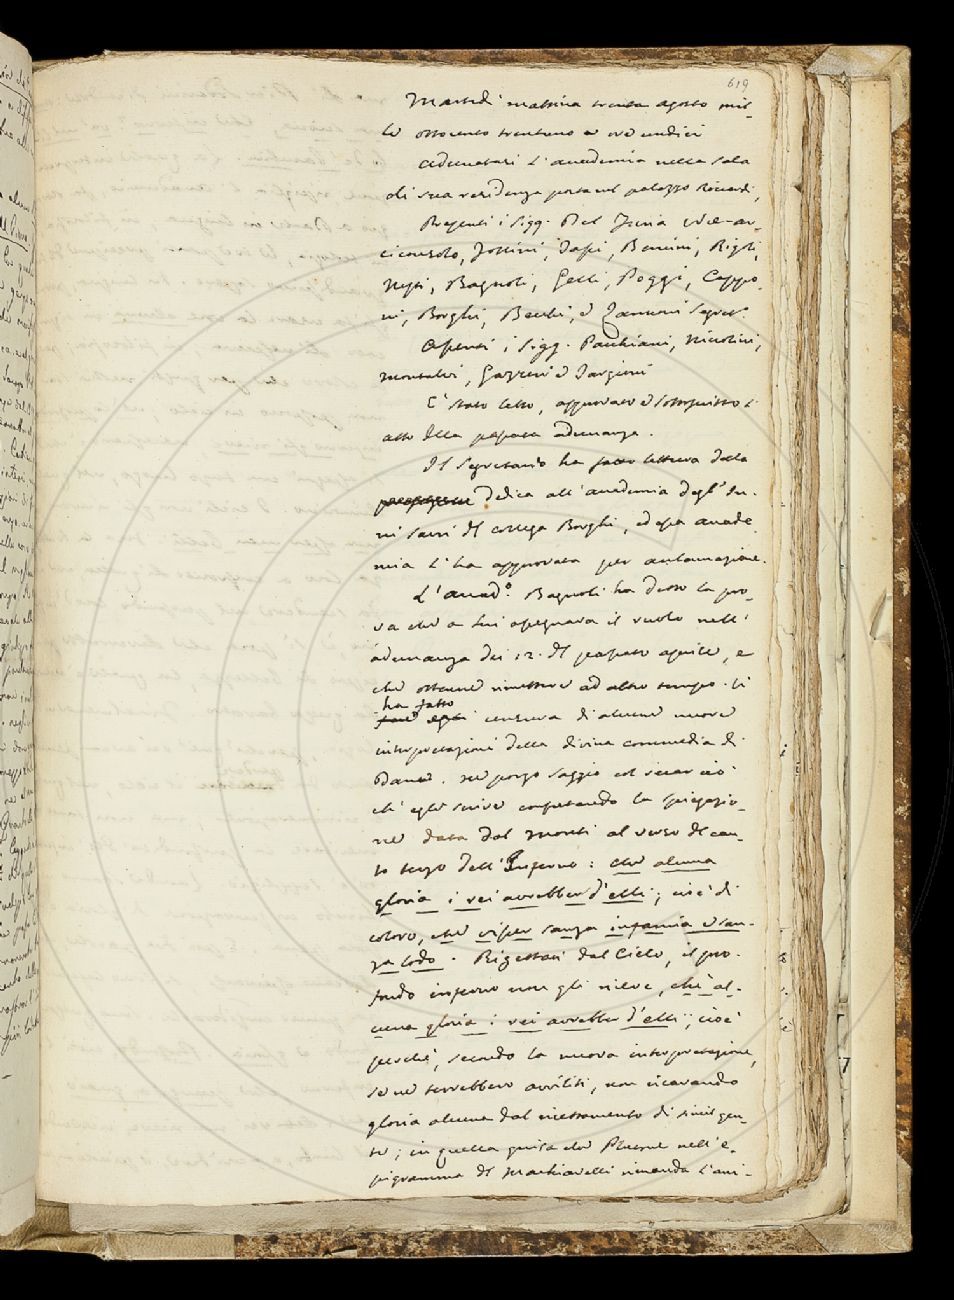 619
Martedì mattina trenta agosto mil-
le ottocento trentuno a ore undici
Adunatasi l'accademia nella sala
di sua residenza posta nel palazzo Riccardi,
Presenti i Sigg. Del Furia vice-ar-
ciconsolo, Follini, Bencini, Rigoli,
Nesti, Bagnoli, Gelli, Poggi, Cappo-
ni, Borghi, Becchi, e Zannoni Segret.º
Assenti i Sigg. Pacchiani, Niccolini,
Montalvi, Gazzeri e Targioni
È stato letto, approvato e sottoscritto l'
atto della passata adunanza.
Il Segretario ha fatto lettura della
dedica all'accademia degl'In-
ni sacri del collega Borghi, ed essa accade
mia l'ha approvata per acclamazione.
L'Accad.º Bagnoli ha detto la pro-
sa che a lui assegnava il ruolo nell'
adunanza dei 12. del passato aprile, e
che ottenne rimettere ad altro tempo. Vi
ha fatto
censura di alcune nuove
interpretazioni della divina commedia di
Dante. Ne porgo saggio col recar ciò
ch'egli scrive confutando la spiegazio-
ne data dal Monti al verso del can-
to terzo dell'Inferno: che alcuna
gloria i rei avrebber d'elli; cioè di
coloro, che visser sanza infamia e san-
za lodo. Rigettati dal Cielo, il pro-
fondo inferno non gli riceve, chè al-
cuna gloria i rei avrebber d'elli; cioè
perchè, secondo la nuova interpretazione,
se ne terrebbero avviliti, non ricavando
gloria alcuna dal ricettamento di simil gen-
te; in quella guisa che Plutone nell'e-
pigramma del Machiavelli rimanda l'ani-